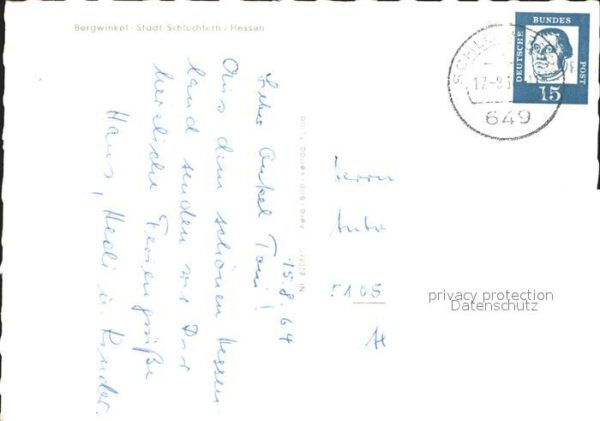 Bergwinkel-Stadt Schlüchtern, Hessen
15.8.64
Lieber Onkel Toni!
Aus dem schönen Hessen-
land senden wir Dir
herzliche Feriengrüße
Hans, Hedi u. Kinder.
DEUTSCHE BUNDES POST
15
17.-8.
649
5105
privacy protection
Datenschutz